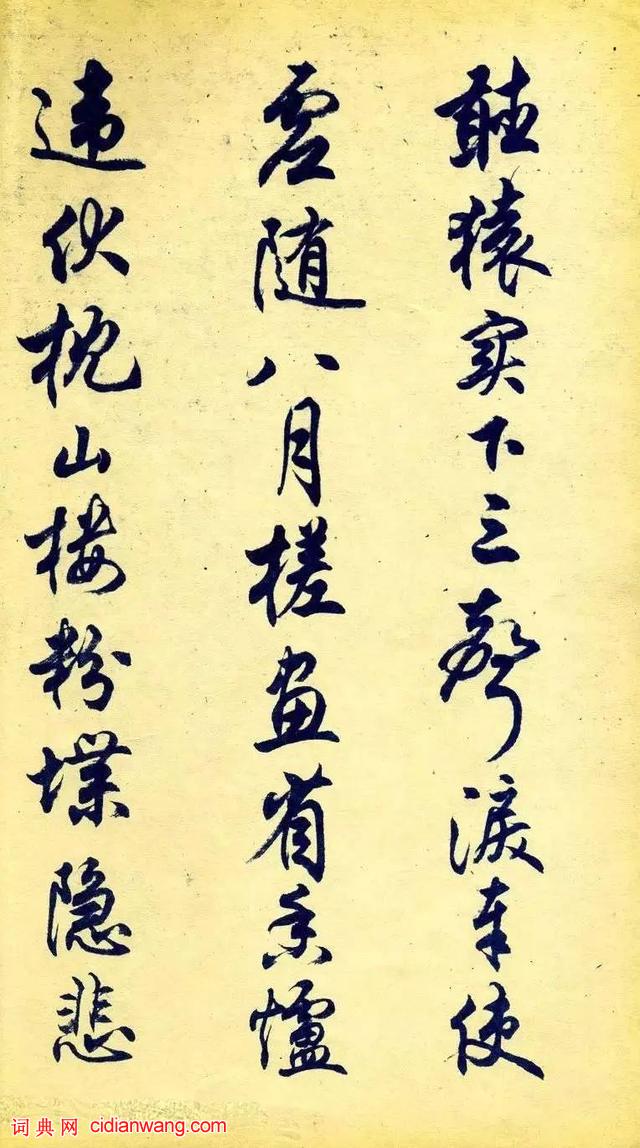 聽猿实下三聲淚奉使
虛随八月槎画省香爐
违伏枕山楼粉堞隐悲
词典网 cidianwang.com